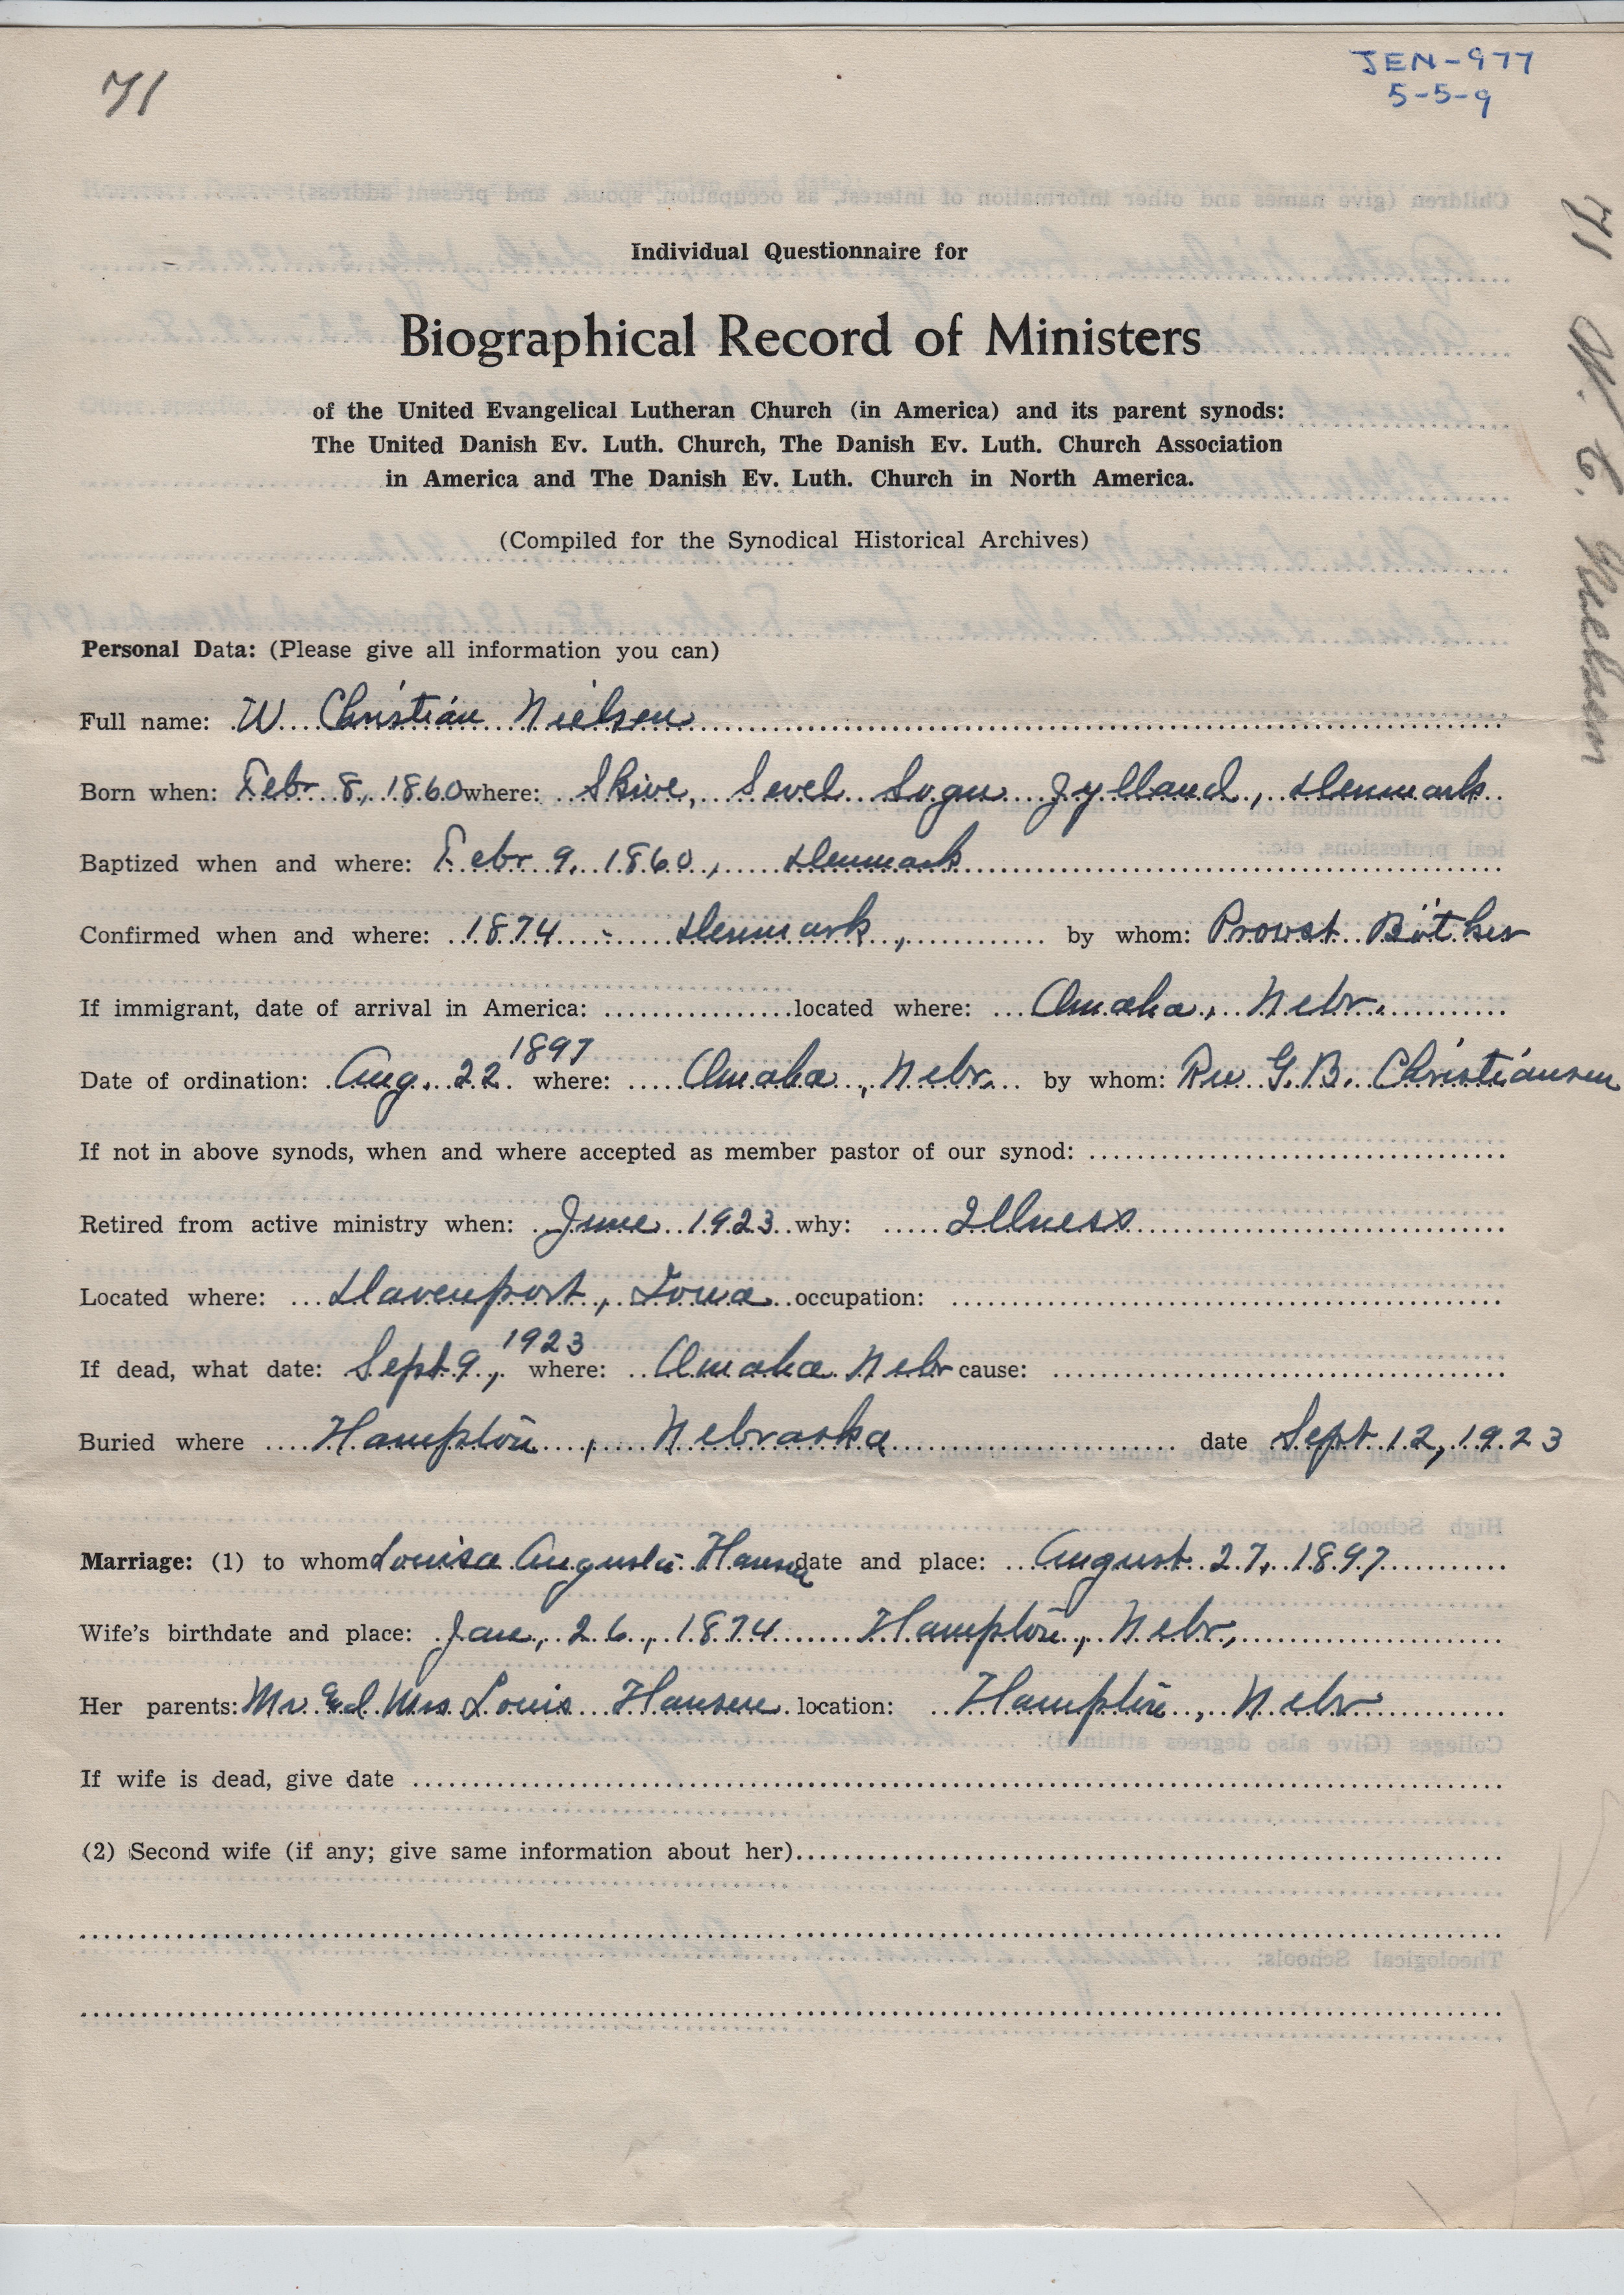 71
JEN-977
5-5-9
71 W. C. Nielsen
Individual Questionnaire for
Biographical Record of Ministers
of the United Evangelical Lutheran Church (in America) and its parent synods:
The United Danish Ev. Luth. Church, The Danish Ev. Luth. Church Association
in America and The Danish Ev. Luth. Church in North America.
(Compiled for the Synodical Historical Archives)
Personal Data: (Please give all information you can)
Full name: W. Christian Nielsen
Born when: Febr 8, 1860 where: Skive, Sevel Sogn Jylland, Denmark
Baptized when and where: Febr 9, 1860, Denmark
Confirmed when and where: 1874 - Denmark, by whom: Prowst Bötker
If immigrant, date of arrival in America: located where: Omaha, Nebr.
Date of ordination: Aug. 22 1897 where: Omaha, Nebr. by whom: Rev G. B. Christiansen
If not in above synods, when and where accepted as member pastor of our synod:
Retired from active ministry when: June 1923 why: Illness
Located where: Davenport, Iowa occupation:
If dead, what date: Sept 9, 1923 where: Omaha Nebr cause:
Buried where Hampton, Nebraska date Sept 12, 1923
Marriage: (1) to whom Louisa Augusta Hansen date and place: August 27, 1897
Wife's birthdate and place: Jan, 26, 1874 Hampton, Nebr,
Her parents: Mr and Mrs Louis Hansen location: Hampton, Nebr
If wife is dead, give date
(2) Second wife (if any; give same information about her)